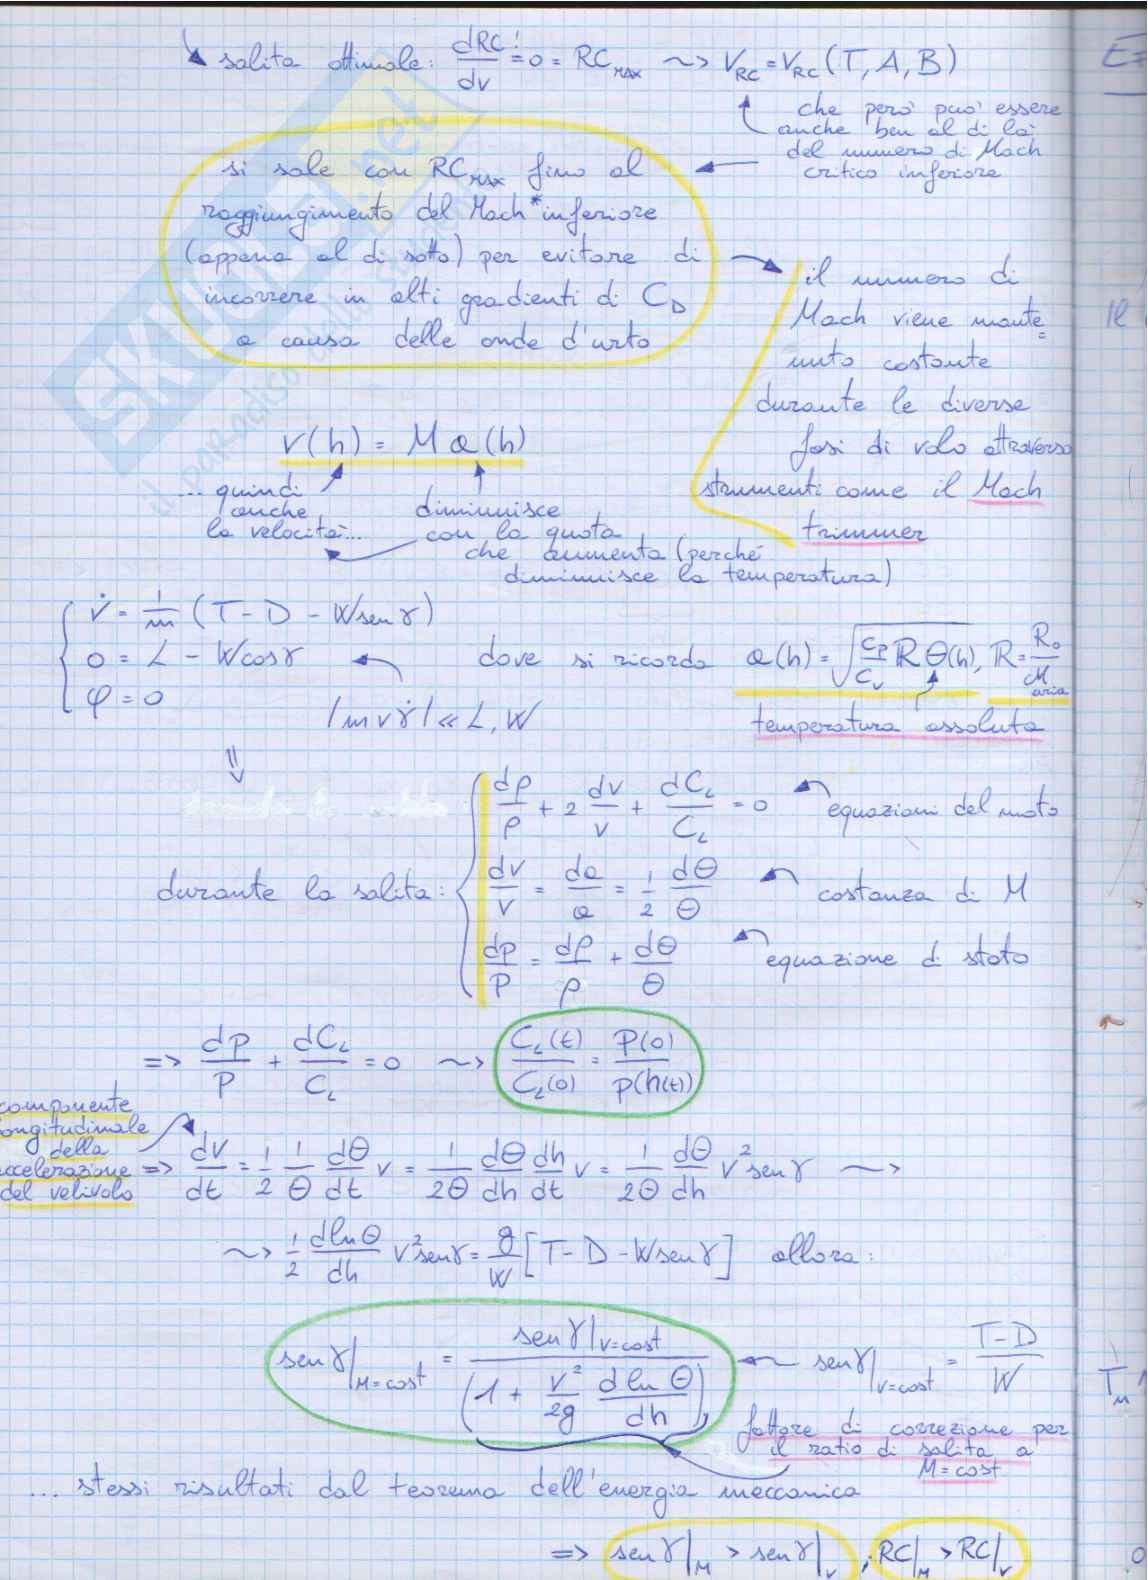 salita ottimale: dRC/dv != 0 = RC_MAX ~> V_RC = V_RC (T, A, B)
che però può essere
anche ben al di là
del numero di Mach
critico inferiore
si sale con RC_MAX fino al
raggiungimento del Mach* inferiore
(appena al di sotto) per evitare di
incorrere in alti gradienti di C_D
a causa delle onde d'urto
il numero di
Mach viene mante=
nuto costante
durante le diverse
fasi di volo attraverso
strumenti come il Mach
trimmer
v(h) = M a(h)
... quindi
anche
la velocità...
diminuisce
con la quota
che aumenta (perché
diminuisce la temperatura)
v̇ = 1/m (T - D - W sen γ)
0 = L - W cos γ
φ = 0
|m v γ̇| << L, W
dove si ricorda a(h) = √(c_p/c_v ℝ Θ(h)), ℝ = R_0/M_aria
temperatura assoluta
⇓
durante la salita:
dρ/ρ + 2 dv/v + dC_L/C_L = 0 equazioni del moto
dv/v = da/a = 1/2 dΘ/Θ costanza di M
dp/p = dρ/ρ + dΘ/Θ equazione di stato
=> dp/p + dC_L/C_L = 0 ~> C_L(t)/C_L(0) = p(0)/p(h(t))
componente
longitudinale
della
accelerazione
del velivolo
=> dv/dt = 1/2 1/Θ dΘ/dt v = 1/2Θ dΘ/dh dh/dt v = 1/2Θ dΘ/dh v² sen γ ~>
~> 1/2 dlnΘ/dh v² sen γ = g/W [T - D - W sen γ] allora:
sen γ|_M=cost = sen γ|_v=cost / (1 + v²/2g dlnΘ/dh) sen γ|_v=cost = T-D/W
fattore di correzione per
il ratio di salita a
M=cost
... stessi risultati dal teorema dell'energia meccanica
=> sen γ|_M > sen γ|_v ; RC|_M > RC|_v
SKUOLA.net
il paradiso dello studente